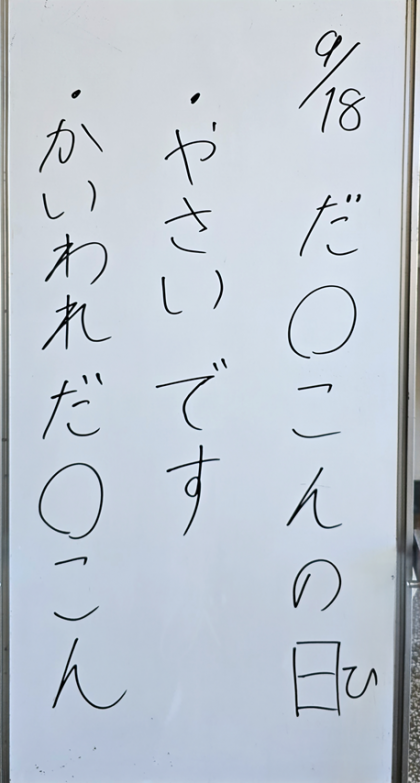 9/18 だ〇こんの日ひ
・やさいです
・かいわれだ〇こん